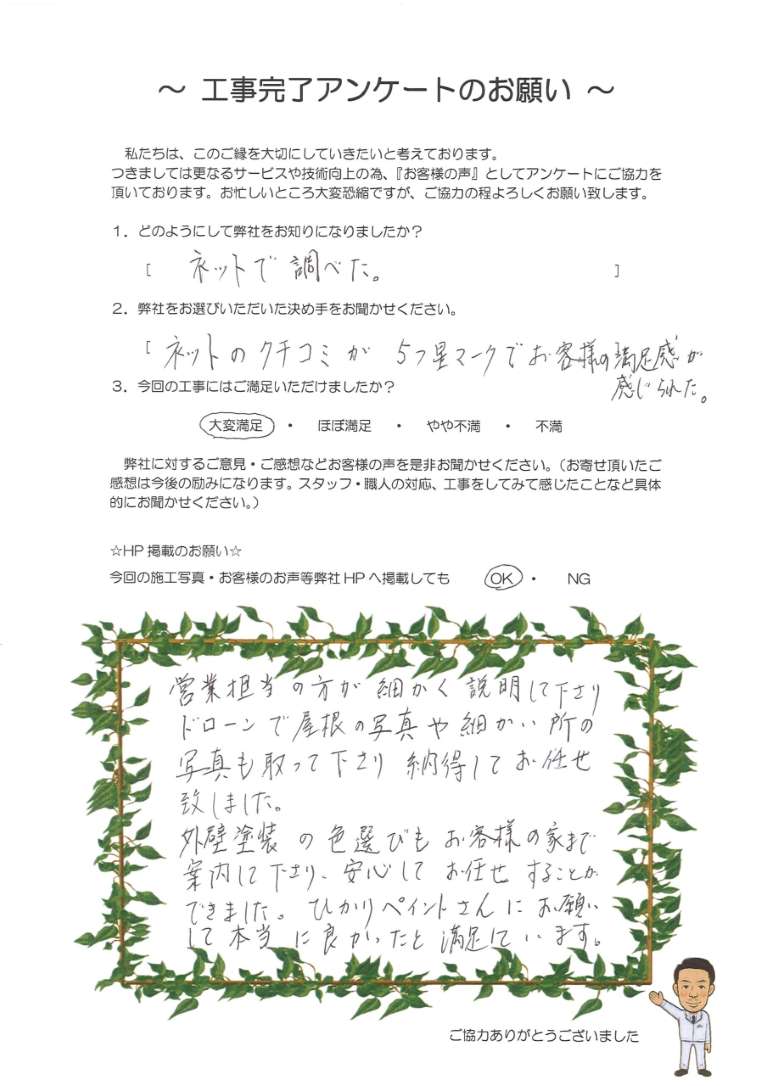 ～ 工事完了アンケートのお願い ～
私たちは、このご縁を大切にしていきたいと考えております。
つきましては更なるサービスや技術向上の為、『お客様の声』としてアンケートにご協力を
頂いております。お忙しいところ大変恐縮ですが、ご協力の程よろしくお願い致します。
1．どのようにして弊社をお知りになりましたか？
［ ネットで調べた。 ］
2．弊社をお選びいただいた決め手をお聞かせください。
「ネットのクチコミが 5つ星マークでお客様の満足感が
感じられた。
3．今回の工事にはご満足いただけましたか？
大変満足 ・ ほぼ満足 ・ やや不満 ・ 不満
弊社に対するご意見・ご感想などお客様の声を是非お聞かせください。（お寄せ頂いたご
感想は今後の励みになります。スタッフ・職人の対応、工事をしてみて感じたことなど具体
的にお聞かせください。）
☆HP 掲載のお願い☆
今回の施工写真・お客様のお声等弊社 HP へ掲載しても OK ・ NG
営業担当の方が細かく説明して下さり
ドローンで屋根の写真や細かい所の
写真も取って下さり 納得してお任せ
致しました。
外壁塗装の色選びもお客様の家まで
案内して下さり、安心してお任せすることが
できました。ひかりペイントさんにお願い
して本当に良かったと満足しています。
ご協力ありがとうございました